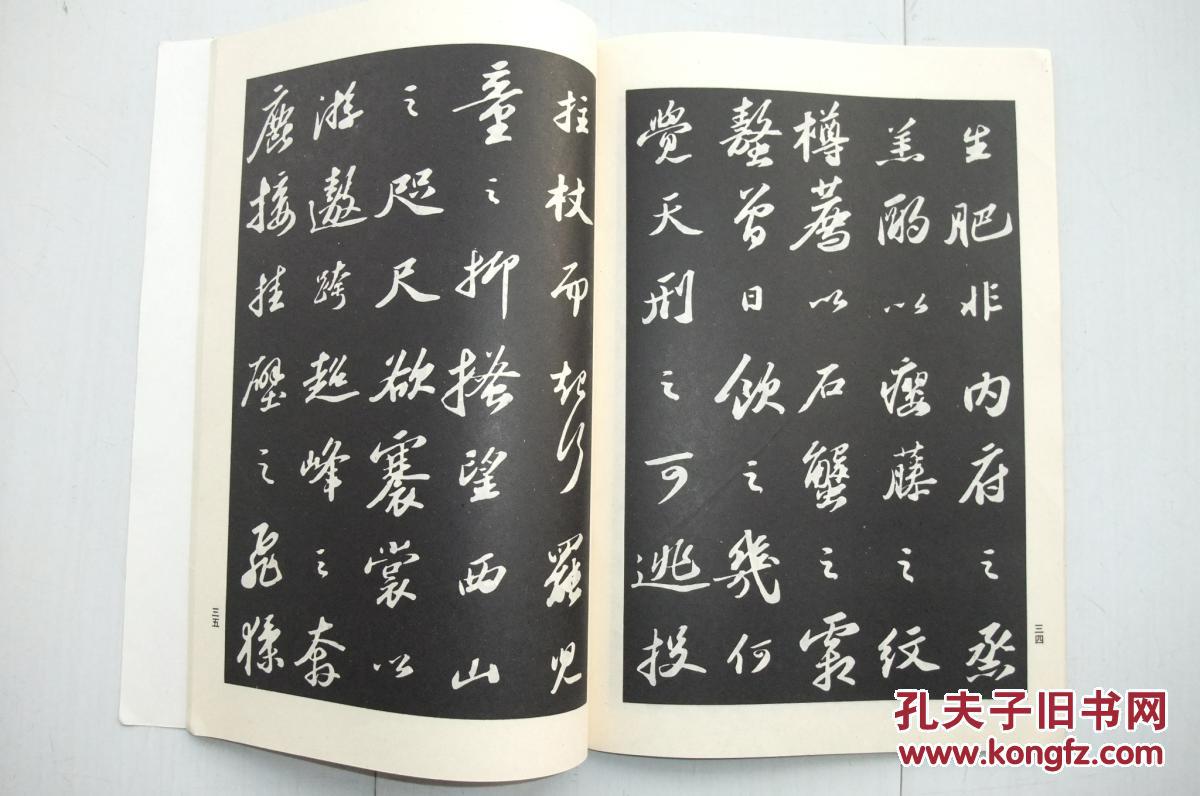 生肥非内府之烝
羔酌以癭藤之紋
樽薦以石蟹之霜
螯曾日飲之幾何
覺天刑之可逃投
三四
拄杖而起行罷兒
童之抑搔望西山
之咫尺欲褰裳以
游遨跨超峰之奔
鹿接挂壁之飛猱
三五
孔夫子旧书网
www.kongfz.com